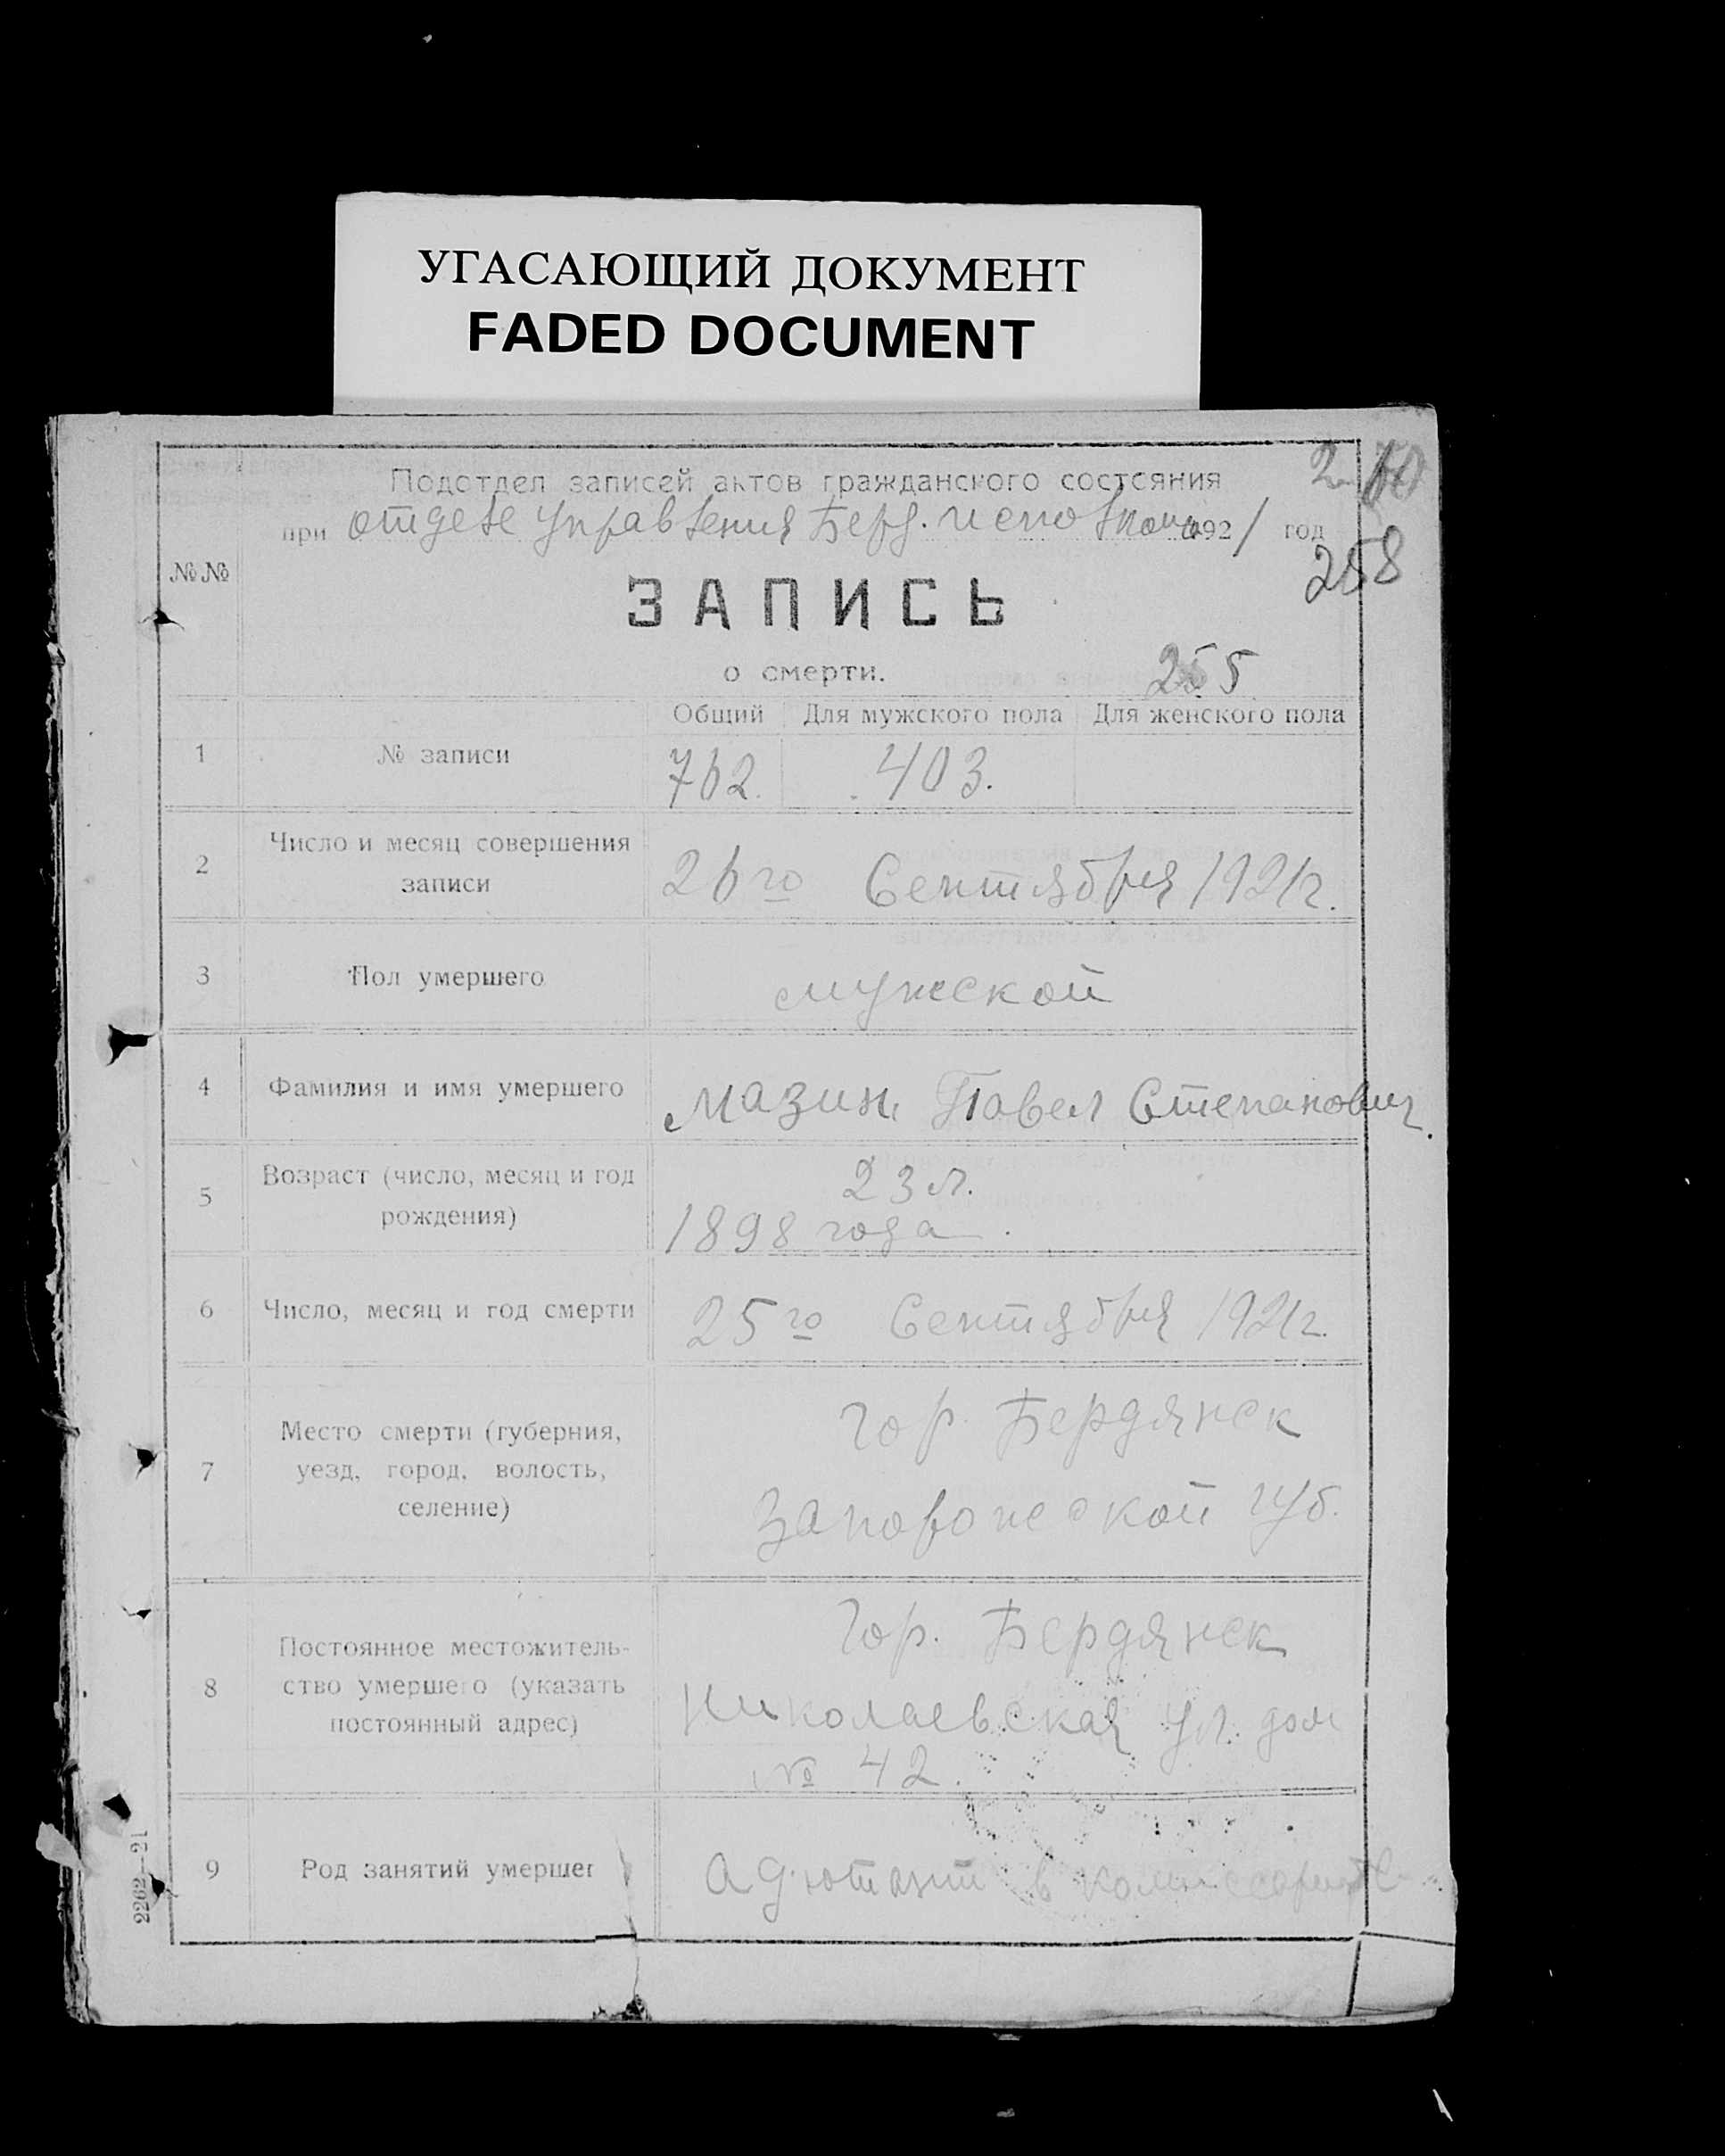 УГАСАЮЩИЙ ДОКУМЕНТ
FADED DOCUMENT
Подотдел записей актов гражданского состояния
при отделе управления Берд. 192 1 год
258
№№
ЗАПИСЬ
о смерти.
255
Общий Для мужского пола Для женского пола
1 № записи 762. 403.
2 Число и месяц совершения
записи
26го Сентября 1921г.
3 Пол умершего мужской
4 Фамилия и имя умершего Мазин Павел Степанович.
5 Возраст (число, месяц и год
рождения)
23 л.
1898 года.
6 Число, месяц и год смерти 25го Сентября 1921г.
7 Место смерти (губерния,
уезд, город, волость,
селение)
гор. Бердянск
Запорожской губ.
8 Постоянное местожитель-
ство умершего (указать
постоянный адрес)
Гор. Бердянск
Николаевская ул. дом
№ 42.
9 Род занятий умершег Адютант в
2262—21